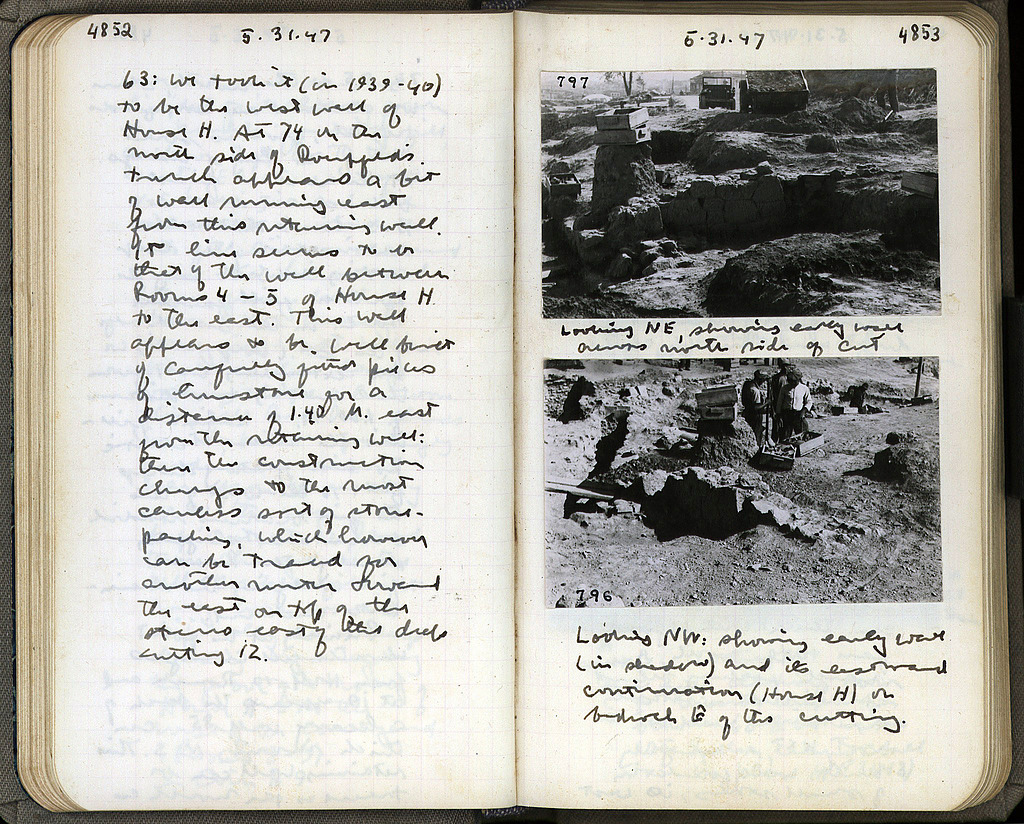 4852
5.31.47
63: we took it (in 1939-40)
to be the west wall of
House H. At 74 on the
north side of
trench appears a bit
of wall running east
from this retaining wall.
Its line seems to be
that of the wall between
Rooms 4 - 5 of House H
to the east. This wall
appears to be well built
of carefully fitted pieces
of limestone for a
distance of 1.40 M. east
from the retaining wall:
then the construction
changes to the most
careless sort of stone-
packing, which however
can be traced for
another meter toward
the east on top of the
east of this deep
cutting 12.
5.31.47
4853
797
Looking NE, showing early wall
across north side of cut
796
Looking NW: showing early wall
(in shadow) and its eastward
continuation (House H) on
bedrock E of this cutting.